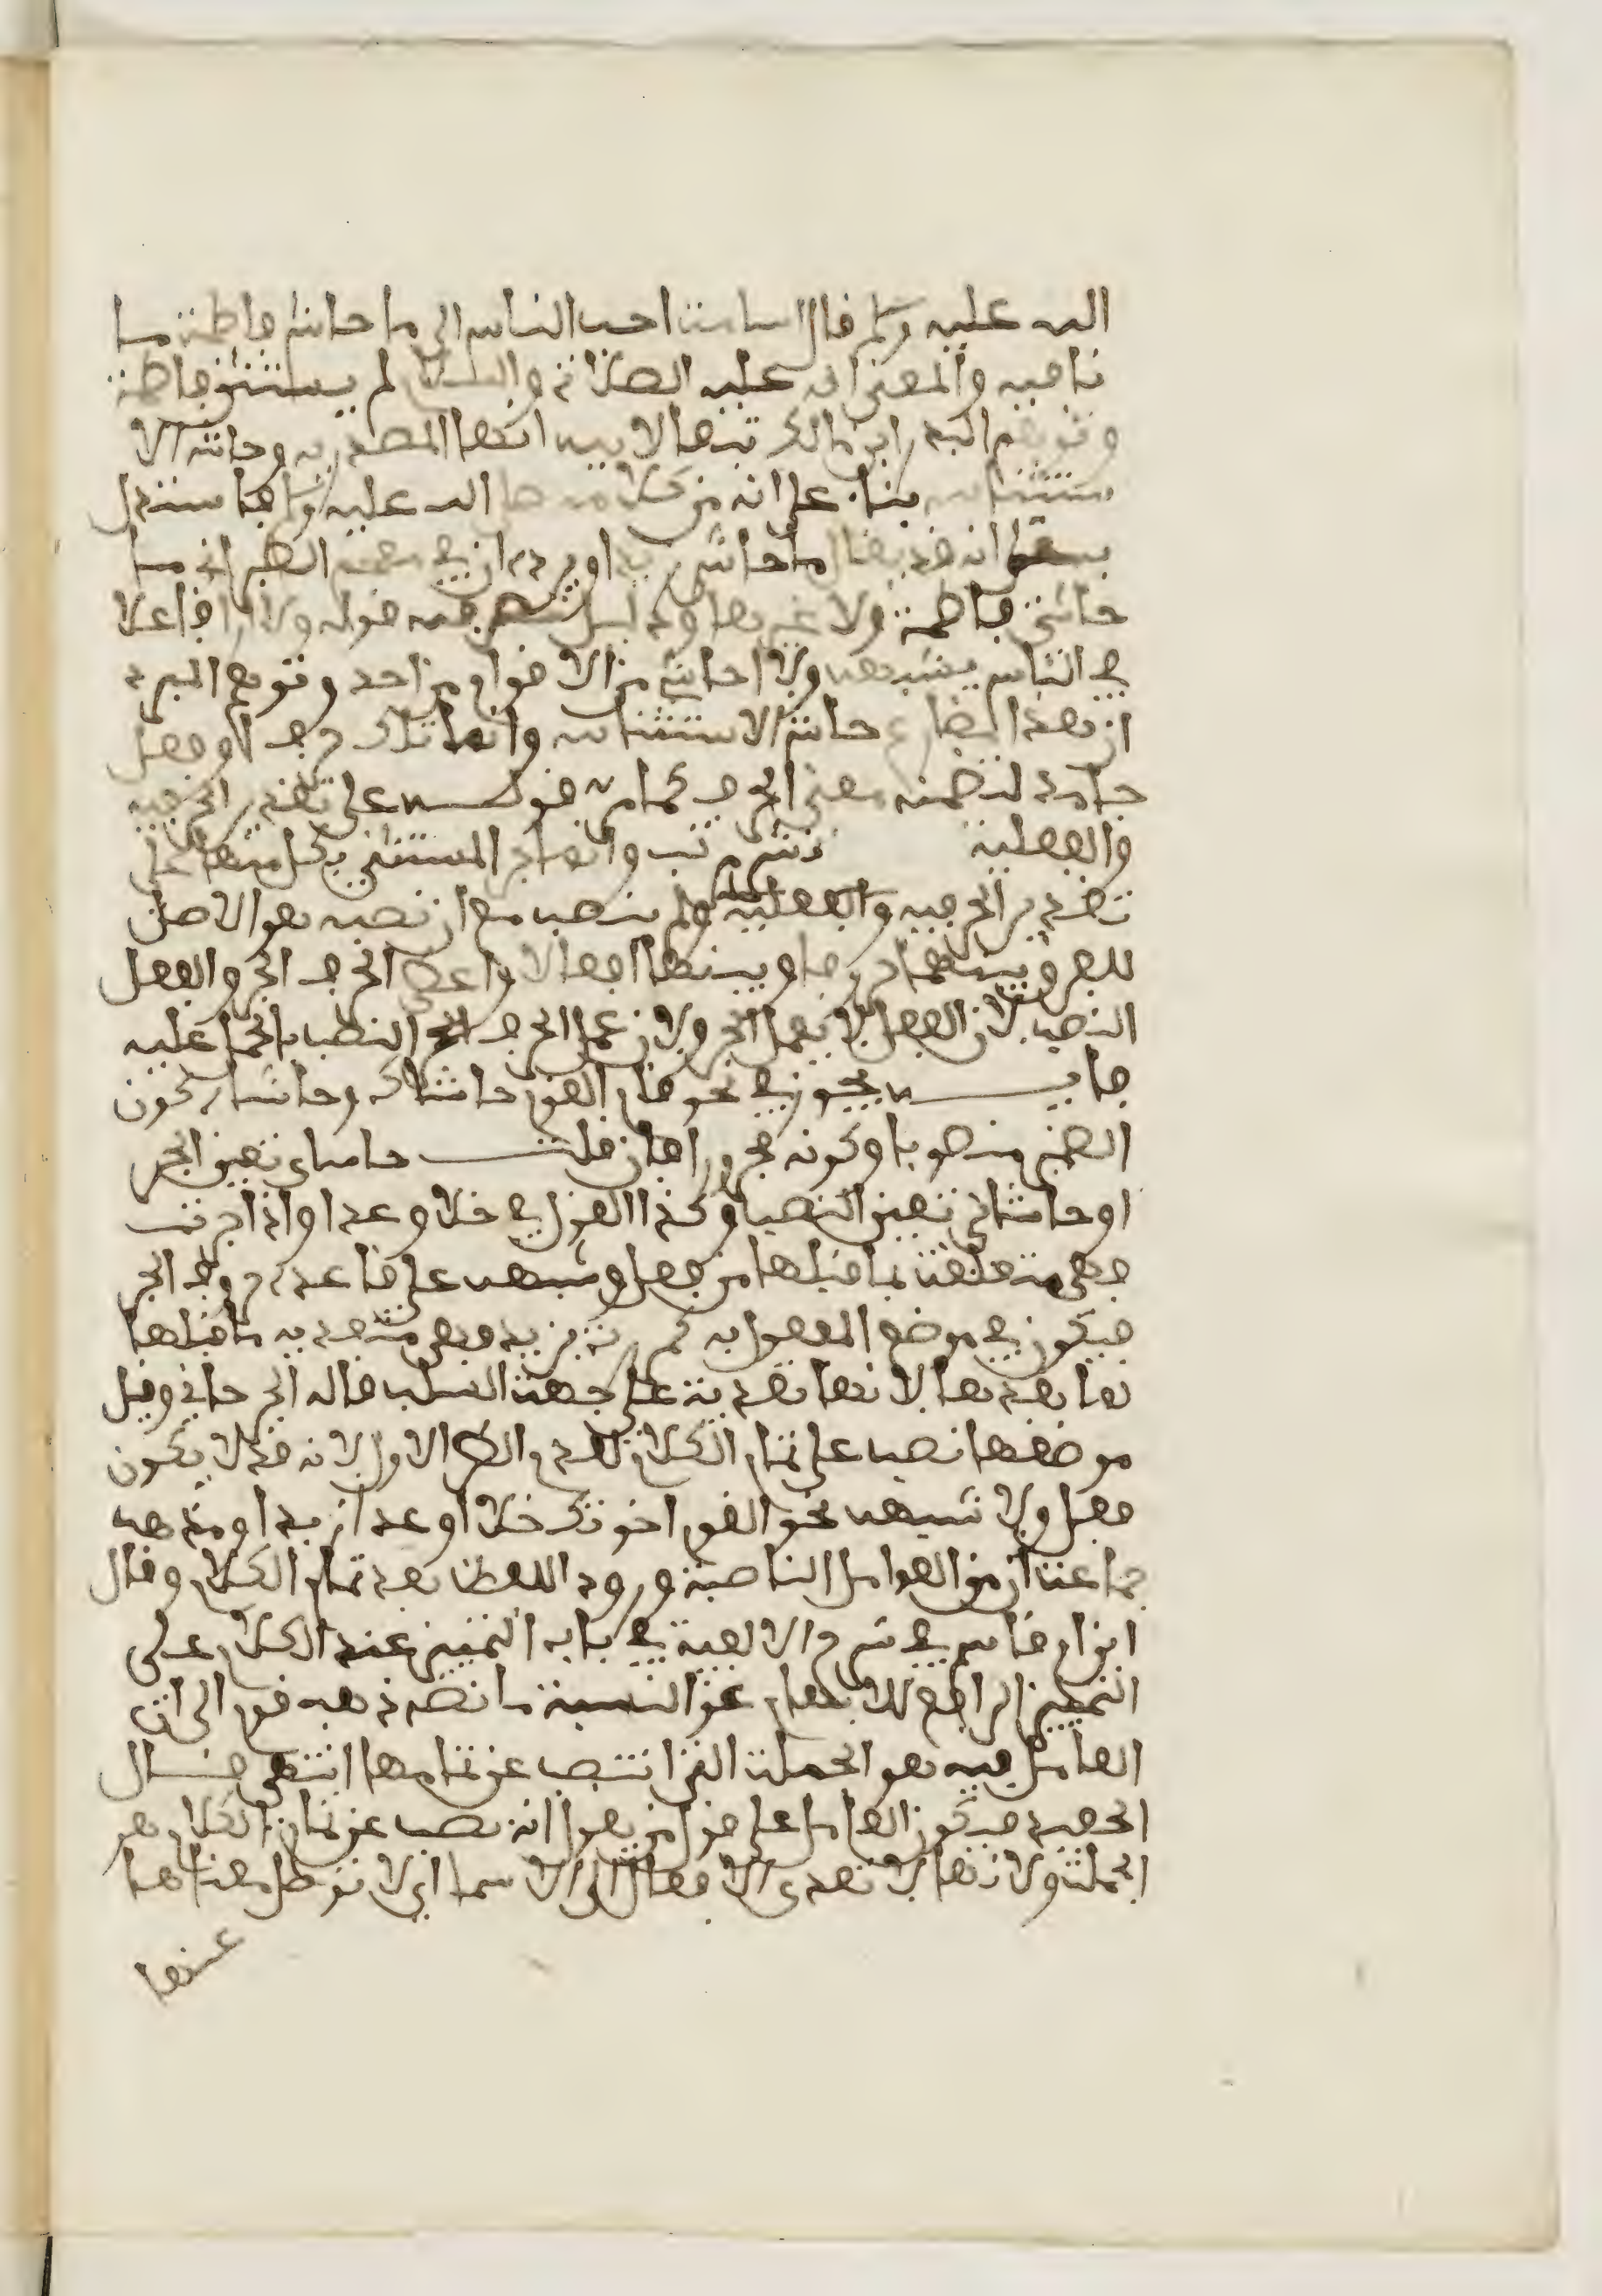 الله عليه وسلم قال اسامة احب الناس الي ما حاشى فاطمة ما
نافية والمعنى انه عليه الصلاة والسلام لم يستثن فاطمة
وتوهم ابن مالك تبعا لابيه انها المصدرية وحاشى الا
ستثنائية بناء على انه من كلامه صلى الله عليه وسلم فاستدل
به على انه قد يقال ما حاشى زيدا ويرده ان في معجم الطبراني ما
حاشى فاطمة ولا غيرها ودليل تصرفه قوله ولا ارى فاعلا
في الناس يشبهه ولا احاشي من الاقوام من احد وتوهم المبرد
ان هذا مضارع حاشى الاستثنائية وانما تلك حرف او فعل
جامد لتضمنه معنى الحرف كما مر قوله على تقدير الحرفية
والفعلية نشر مرتب وانما جر المستثنى بكل منها على
تقدير الحرفية والفعلية ولم ينصب مع ان نصبه هو الاصل
للفرق بينها حروفا وبينها افعالا واعطي الحرف الجر والفعل
النصب لان الفعل لا يعمل الجر ولان عمل الحرف النصب بالحمل عليه
فايدة يجوز في نحو قام القوم حاشاك وحاشاه كون
الضمير منصوبا وكونه مجرورا فان قلت حاشاي تعين الجر
او حاشاني تعين النصب وكذا القول في خلا وعدا واذا جرت
فهي متعلقة بما قبلها من فعل وشبهه على قاعدة حروف الجر
فيكون في موضع المفعول به كمررت بزيد وهي متعدية ما قبلها
لما بعدها لانها تعدية على جهة السلب قاله الجرجاني وقيل
موضعها نصب على تمام الكلام والاول لانه قد لا يكون
فعل ولا شبهه نحو القوم اخوتك خلا او عدا زيد او مذهب
جماعة ان من العوامل الناصبة ورود اللفظ بعد تمام الكلام وقال
ابن ام قاسم في شرح الالفية في باب التمييز عند الكلام على
التمييز الرافع للابهام عن النسبة ما نصه ذهب قوم الى ان
العامل فيه هو الجملة التي انتصب عن تمامها انتهى قال
الحفيد فيكون العامل على قول من يقول انه نصب عن تمام الكلام هو
الجملة ولانها لا تعدي الافعال الى الاسماء اي لا توصل معناها
عنها